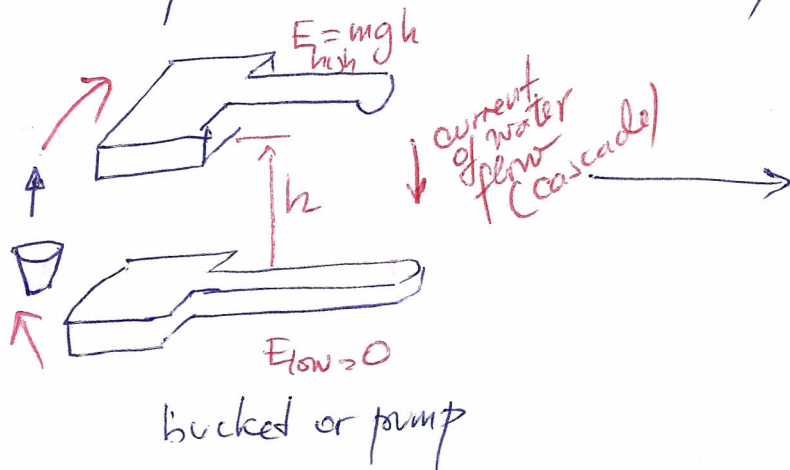 E_high = mgh
current
of water
flow
(cascade)
h
E_low = 0
bucked or pump